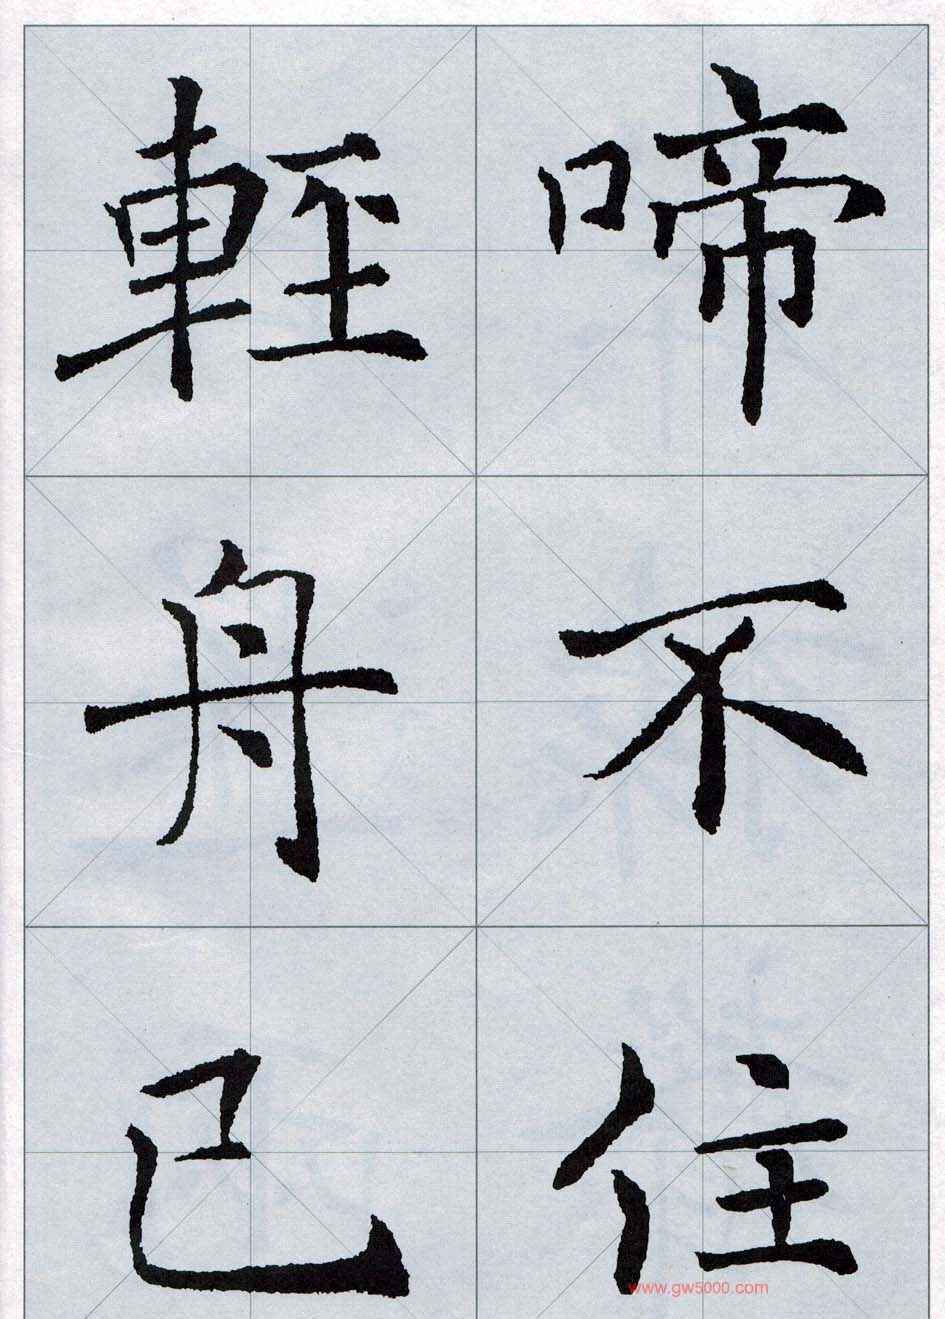 啼不住
輕舟已
www.gw5000.com